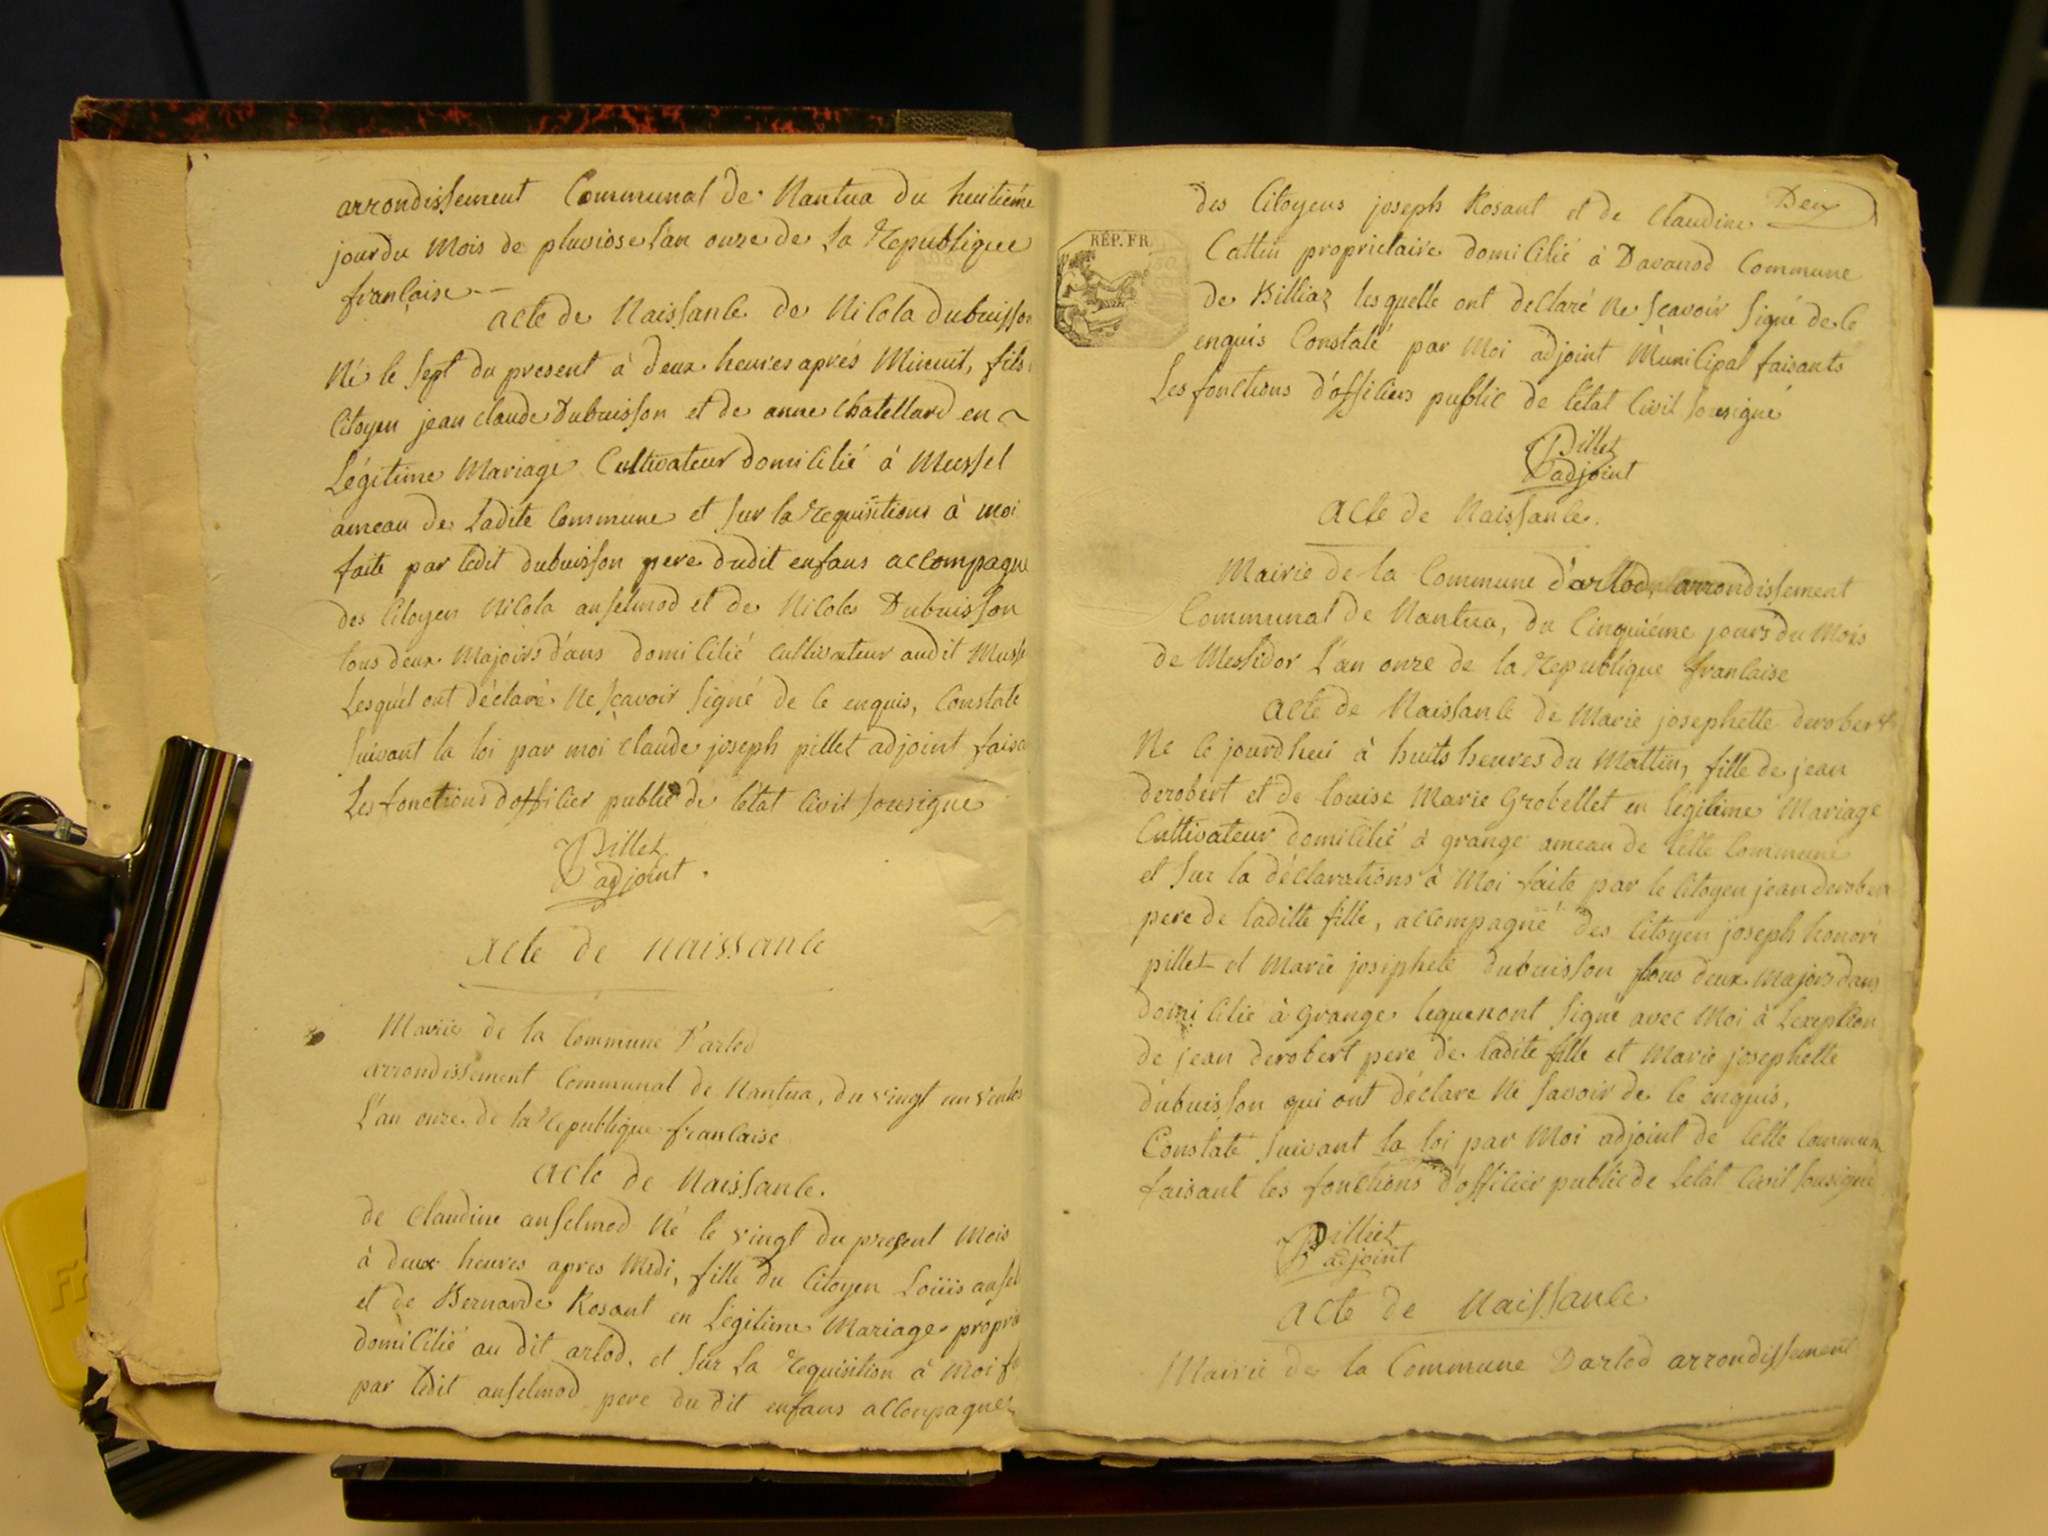 arrondissement Communal de Nantua du huitiéme
jour du mois de pluviose l'an onze de la Republique
francaise
acte de Naissance de Nicola dubuisson
Né le sept du present à deux heures aprés Minuit, fils
Citoyen jean claude Dubuisson et de anne Chatellard en
Légitime Mariage Cultivateur domicilié à Mussel
ameau de Ladite Commune et sur la requisitions à moi
faite par ledit dubuisson pere dudit enfans accompagne
des Citoyen Nicola anselmod et de Nicolas Dubuisson
tous deux Majoirs d'ans domicilié cultivateur audit Muss
Lesquel ont déclaré Ne scavoir signé de ce enquis, Constaté
suivant la loi par moi claude joseph pillet adjoint faisa
Les fonctions d'officier public de l'état Civil sousigne
Pillet
adjoint.
acte de naissance
Mairie de la Commune d'arlod
arrondissement Communal de Nantua, du vingt un ventos
L'an onze de la republique francaise
acte de Naissance.
de claudine anselmod Né le vingt du present Mois
à deux heures apres Midi, fille du Citoyen Loüis ansel
et de Bernarde Rosant en Légitime Mariage propri
domicilié au dit arlod, et sur La requisition à Moi f
par ledit anselmod pere du dit enfans accompagnez
Deux
des Citoyens joseph Rosant et de claudine
Cattin proprietaire domicilié à Davanod Commune
de Billiaz lesquelle ont declaré Ne scavoir signé de ce
enquis Constaté par Moi adjoint Municipal faisants
Les fonctions d'officiers public de l'état Civil sousigné
RÉP. FR.
Pillet
adjoint
acte de Naissance.
Mairie de la Commune d'arlod arrondissement
Communal de Nantua, du Cinquiéme jours du Mois
de Messidor L'an onze de la Republique francaise
acte de Naissance de Marie josephette derobert
Ne le jourdhui à huits heures du Mattin, fille de jean
derobert et de Louise Marie Grobellet en legitime Mariage
Cultivateur domicilié à grange ameau de Cette Commune
et sur la déclarations à Moi faite par le Citoyen jean derober
pere de laditte fille, accompagné des Citoyen joseph honoré
pillet et Marie josephete dubuisson tous deux Majors dans
domicilié à Grange, lequenont signé avec Moi à Lexeption
de jean derobert pere de ladite fille et Marie josephette
dubuisson qui ont déclare Ne savoir de ce enquis,
Constaté suivant la loi par Moi adjoint de Cette Commun
faisant les fonctions d'officier public de L'état Civil sousigné
Pilliet
adjoint
acte de Naissance
Mairie de la Commune Darlod arrondissement